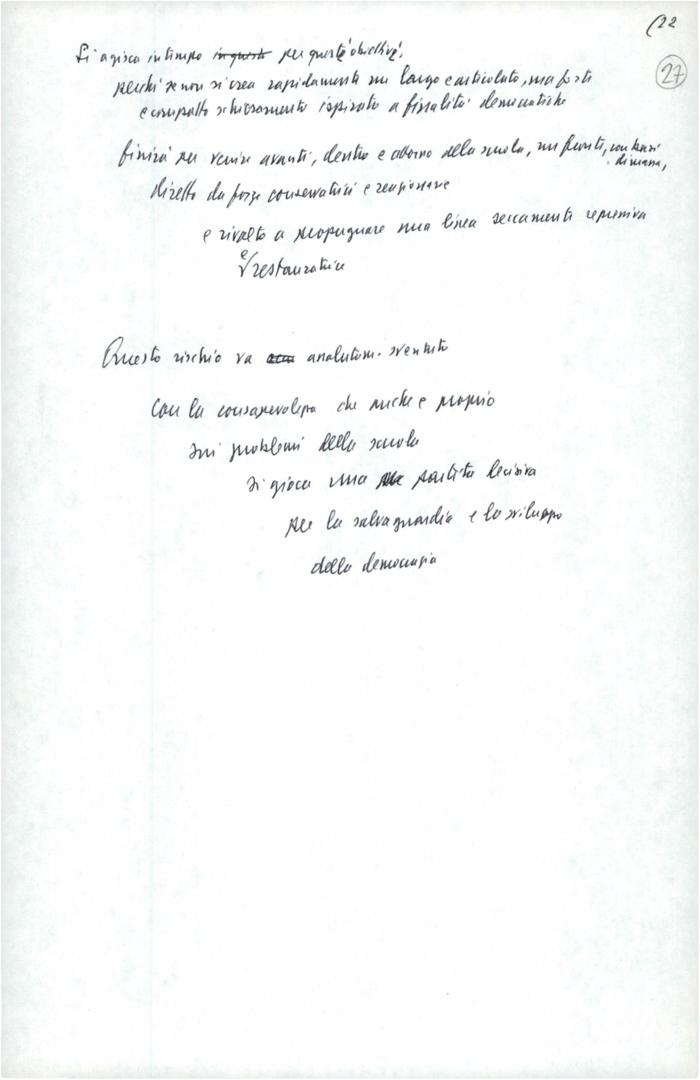 (22
27
Si agisca in tempo in questi per questi obiettivi,
perché se non si crea rapidamente un largo e articolato, ma forte
e compatto schieramento ispirato a finalità democratiche
finirà per venire avanti, dentro e attorno alla scuola, un fronte, con basi
di massa,
diretto da forze conservatrici e reazionarie
e rivolto a propugnare una linea seccamente repressiva
e
restauratrice
Questo rischio va assolutam. sventato
con la consapevolezza che anche e proprio
sui problemi della scuola
si gioca una partita decisiva
per la salvaguardia e lo sviluppo
della democrazia